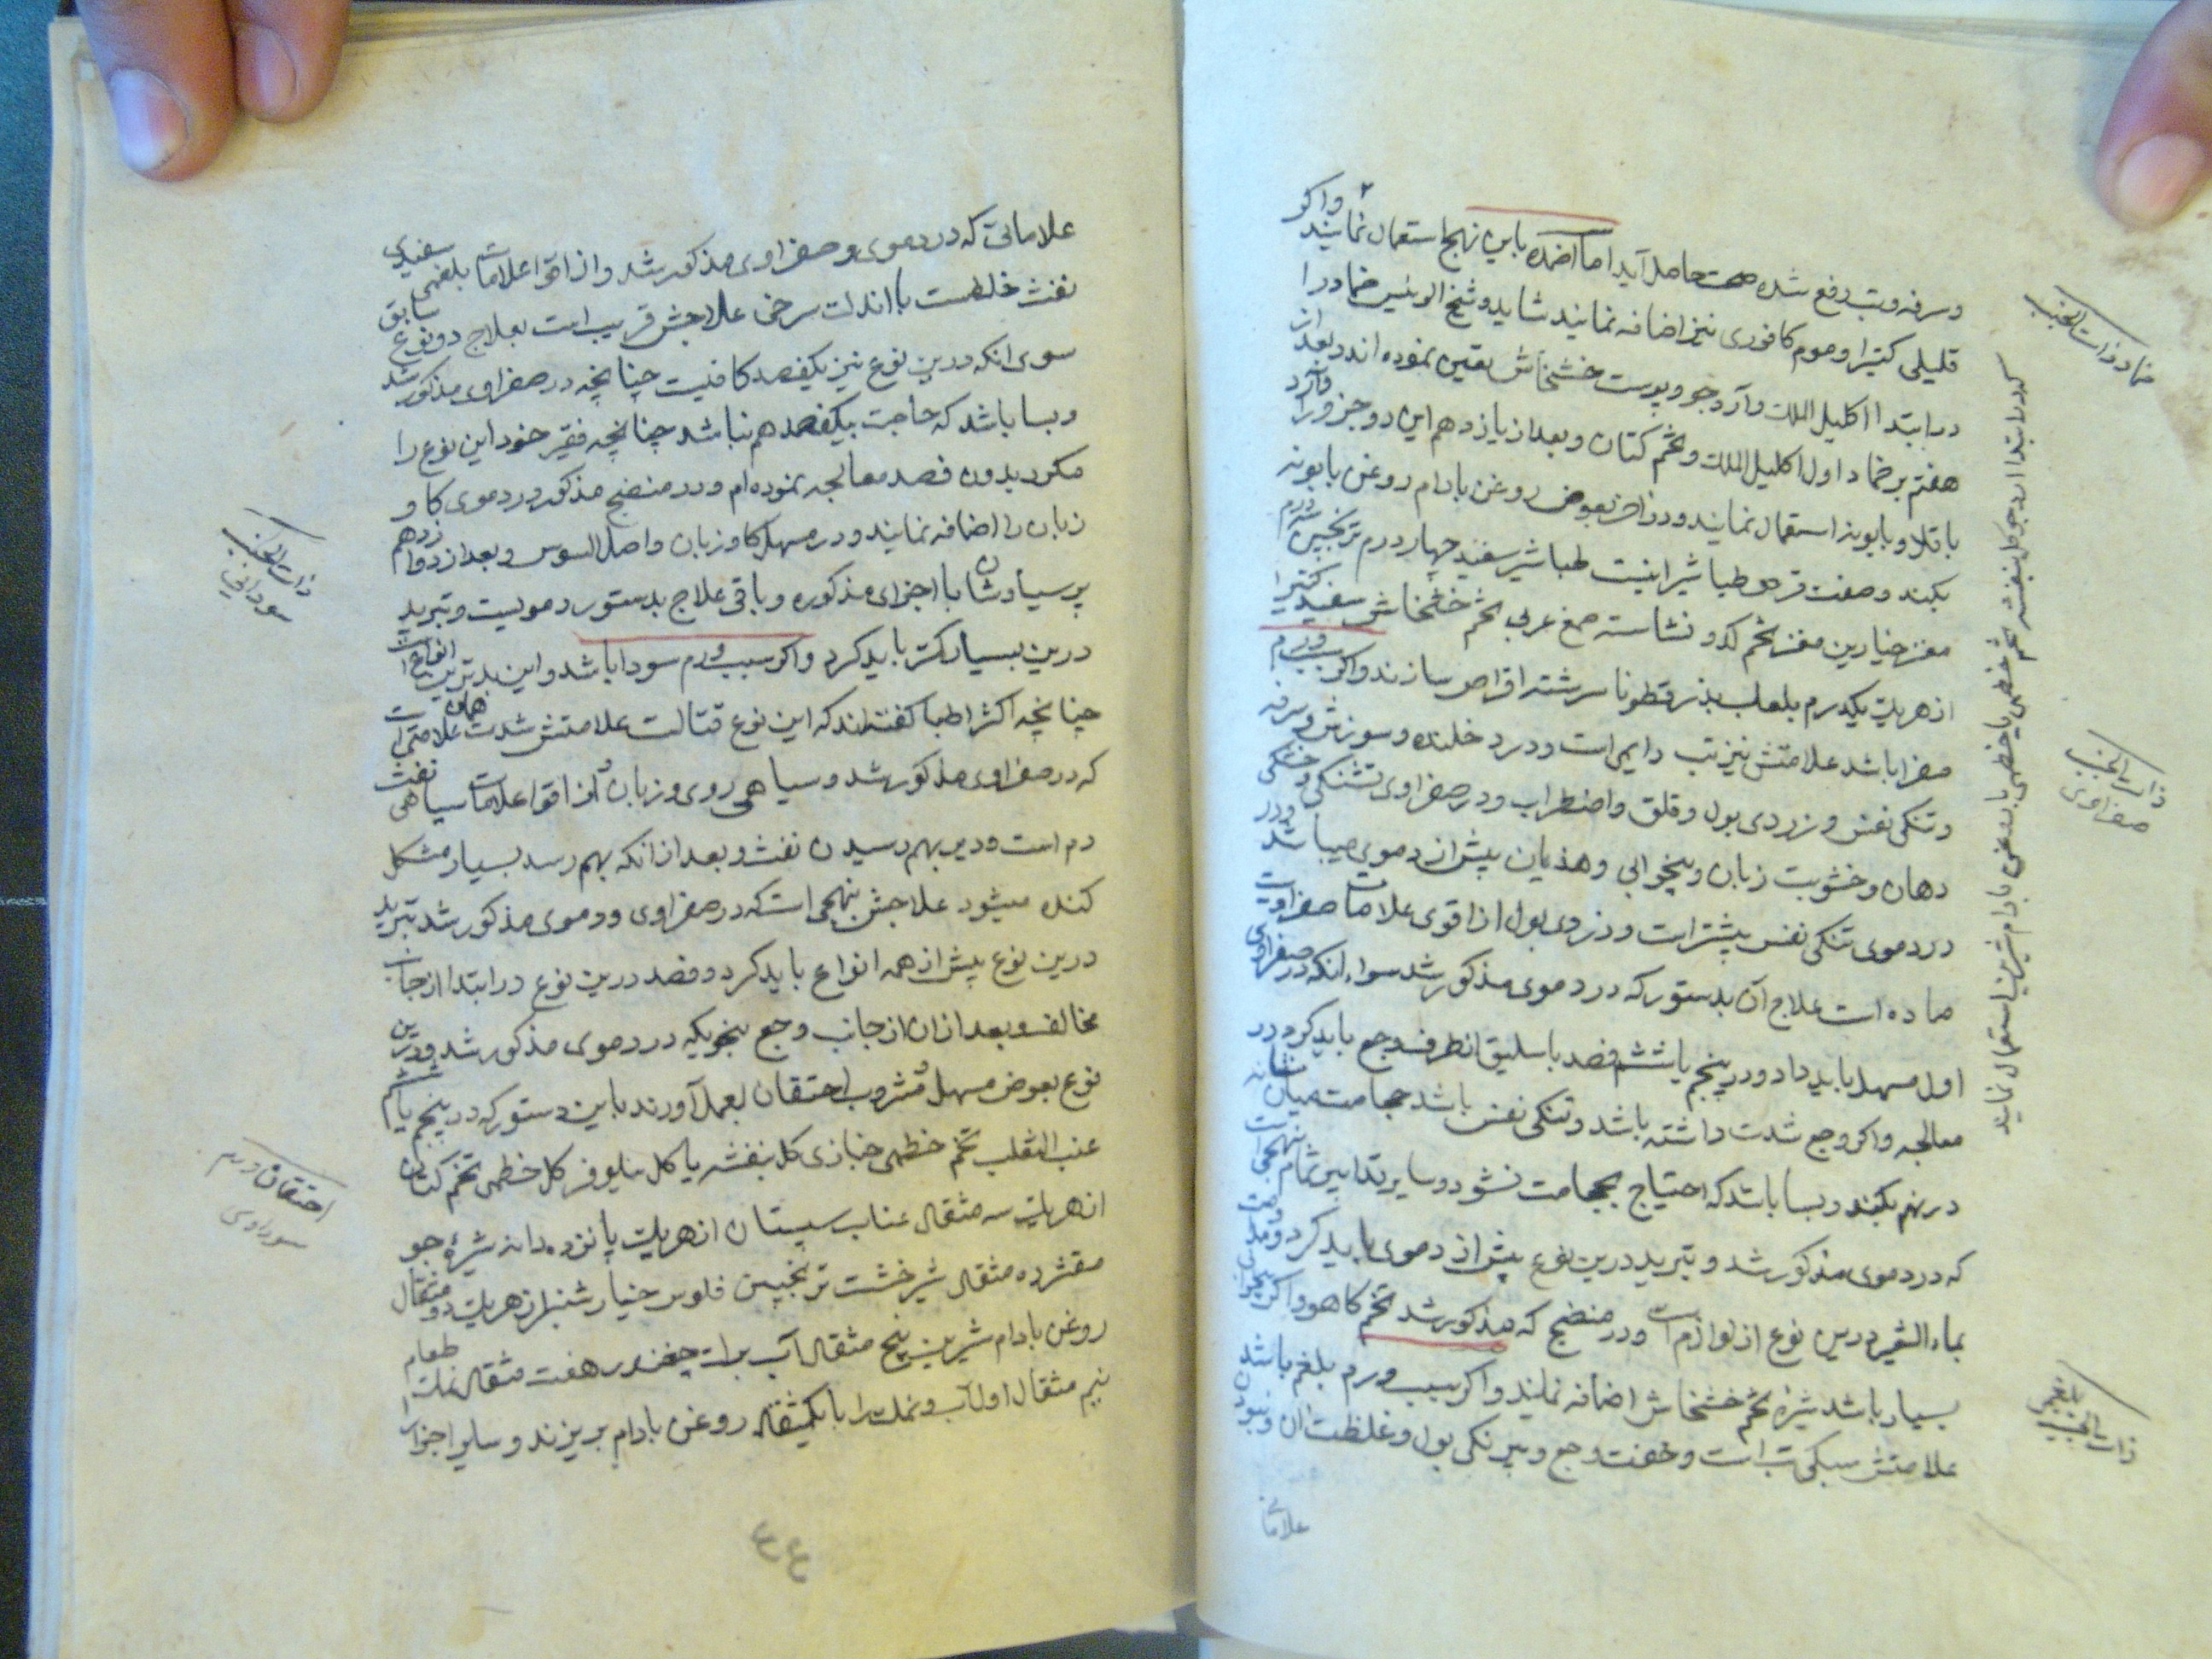 وسرفه وتب دفع شده صحت حاصل آید اما اضمده باین نهج استعمال نمایند واکر
قلیلی کتیرا وموم کافوری نیز اضافه نمایند شاید وشیخ الرئیس ضماد را
در ابتدا اکلیل الملک وآرد جو وپوست خشخاش تعین نموده اند وبعد از
هفتم بر ضماد اول اکلیل الملک وتخم کتان وبعد از یازدهم این دو جزو را وآرد
باقلا وبابونه استعمال نمایند ودر آخر بعوض روغن بادام روغن بابونه
بکنند وصفت قرص طباشیر اینست طباشیر سفید چهار درم ترنجبین سه درم
مغز خیارین مغز تخم کدو نشاسته صمغ عربی تخم خشخاش سفید کتیرا
از هریک یکدرم بلعاب بذر قطونا سرشته اقراص سازند واکر سبب ورم
صفرا باشد علامتش نیز تب دایمی است ودرد خلنده وسوزش وسرفه
وتنکی نفس وزردی بول وقلق واضطراب ودر صفراوی تشنکی وخشکی
دهان وخشونت زبان وبیخوابی وهذیان بیش از دموی میباشد ودر
دردموی تنکی نفس بیشتر است وزردی بول از اقوی علامات صفراویت
ماده است علاج آن بدستور که در دموی مذکور شد سواء انکه در صفراوی
اول مسهل باید داد ودر پنجم یا ششم فصد باسلیق انطرف وجع باید کرد ودر
معالجه واکر وجع شدت داشته باشد وتنکی نفس باشد حجامت میان شانه
در نهم بکنند وبسا باشد که احتیاج بحجامت نشود وسایر تدابیر تمام بنهجی است
که در دموی مذکور شد وتبرید درین نوع بیش از دموی باید کرد
بماء الشعیر درین نوع از لوازم است ودر منضج که مذکور شد تخم کاهو واکر بیخوابی
بسیار باشد شیرۀ تخم خشخاش اضافه نمایند واکر سبب ورم بلغم باشد
علامتش سبکی تب است وخفت وجع وبیرنکی بول وغلظت آن ونبودن
علاماتی
ضماد ذات الجنب
ذات الجنب
صفراوی
ذات الجنب
بلغمی
علاماتی که در دموی وصفراوی مذکور شد واز اقوا علامات بلغمی سفیدی
نفث خلطست با اندک سرخی علاجش قریب است بعلاج دو نوع سابق
سوی انکه درین نوع نیز یکفصد کافیست چنانچه در صفراوی مذکور شد
وبسا باشد که حاجت بیکفصد هم نباشد چنانچه فقیر خود این نوع را
مکرر بدون فصد معالجه نموده ام ودر منضج مذکور در دموی کاو
زبان را اضافه نمایند ودر مسهل کاو زبان واصل السوس وبعد از دوازدهم
پرسیاوشان با اجزای مذکوره وباقی علاج بدستور دمویست وتبرید
درین بسیار کمتر باید کرد واکر سبب ورم سودا باشد واین بدترین انواع است
چنانچه اکثر اطبا کفته اند که این نوع قتالست علامتش شدت همان علامتها است
که در صفراوی مذکور شد وسیاهی روی وزبان واز اقوا علامات سیاهی نفث
دم است ودیر بهم رسیدن نفث وبعد از انکه بهم رسد بسیار مشکل
کنده میشود علاجش بنهجی است که در صفراوی ودموی مذکور شد تبرید
درین نوع بیش از همه انواع باید کرد وفصد درین نوع در ابتدا از جانب
مخالف وبعد از ان از جانب وجع بنحویکه در دموی مذکور شد ودرین
نوع بعوض مسهل مشروب احتقان بعمل آورند باین دستور که در پنجم یا ششم
عنب الثعلب تخم خطمی خبازی کل بنفشه یا کل نیلوفر کل خطمی تخم کتان
از هریک سه مثقال عناب سپستان از هریک پانزده دانه شیرۀ جو
مقشر ده مثقال شیرخشت ترنجبین فلوس خیار شنبر از هریک دو مثقال
روغن بادام شیرین پنج مثقال آب برک چغندر هفت مثقال نمک طعام
نیم مثقال اول آب ونمک را با یکمثقال روغن بادام بریزند وسایر اجزا را
ذات الجنب
سودائی
احتقان ورم
سوداوی